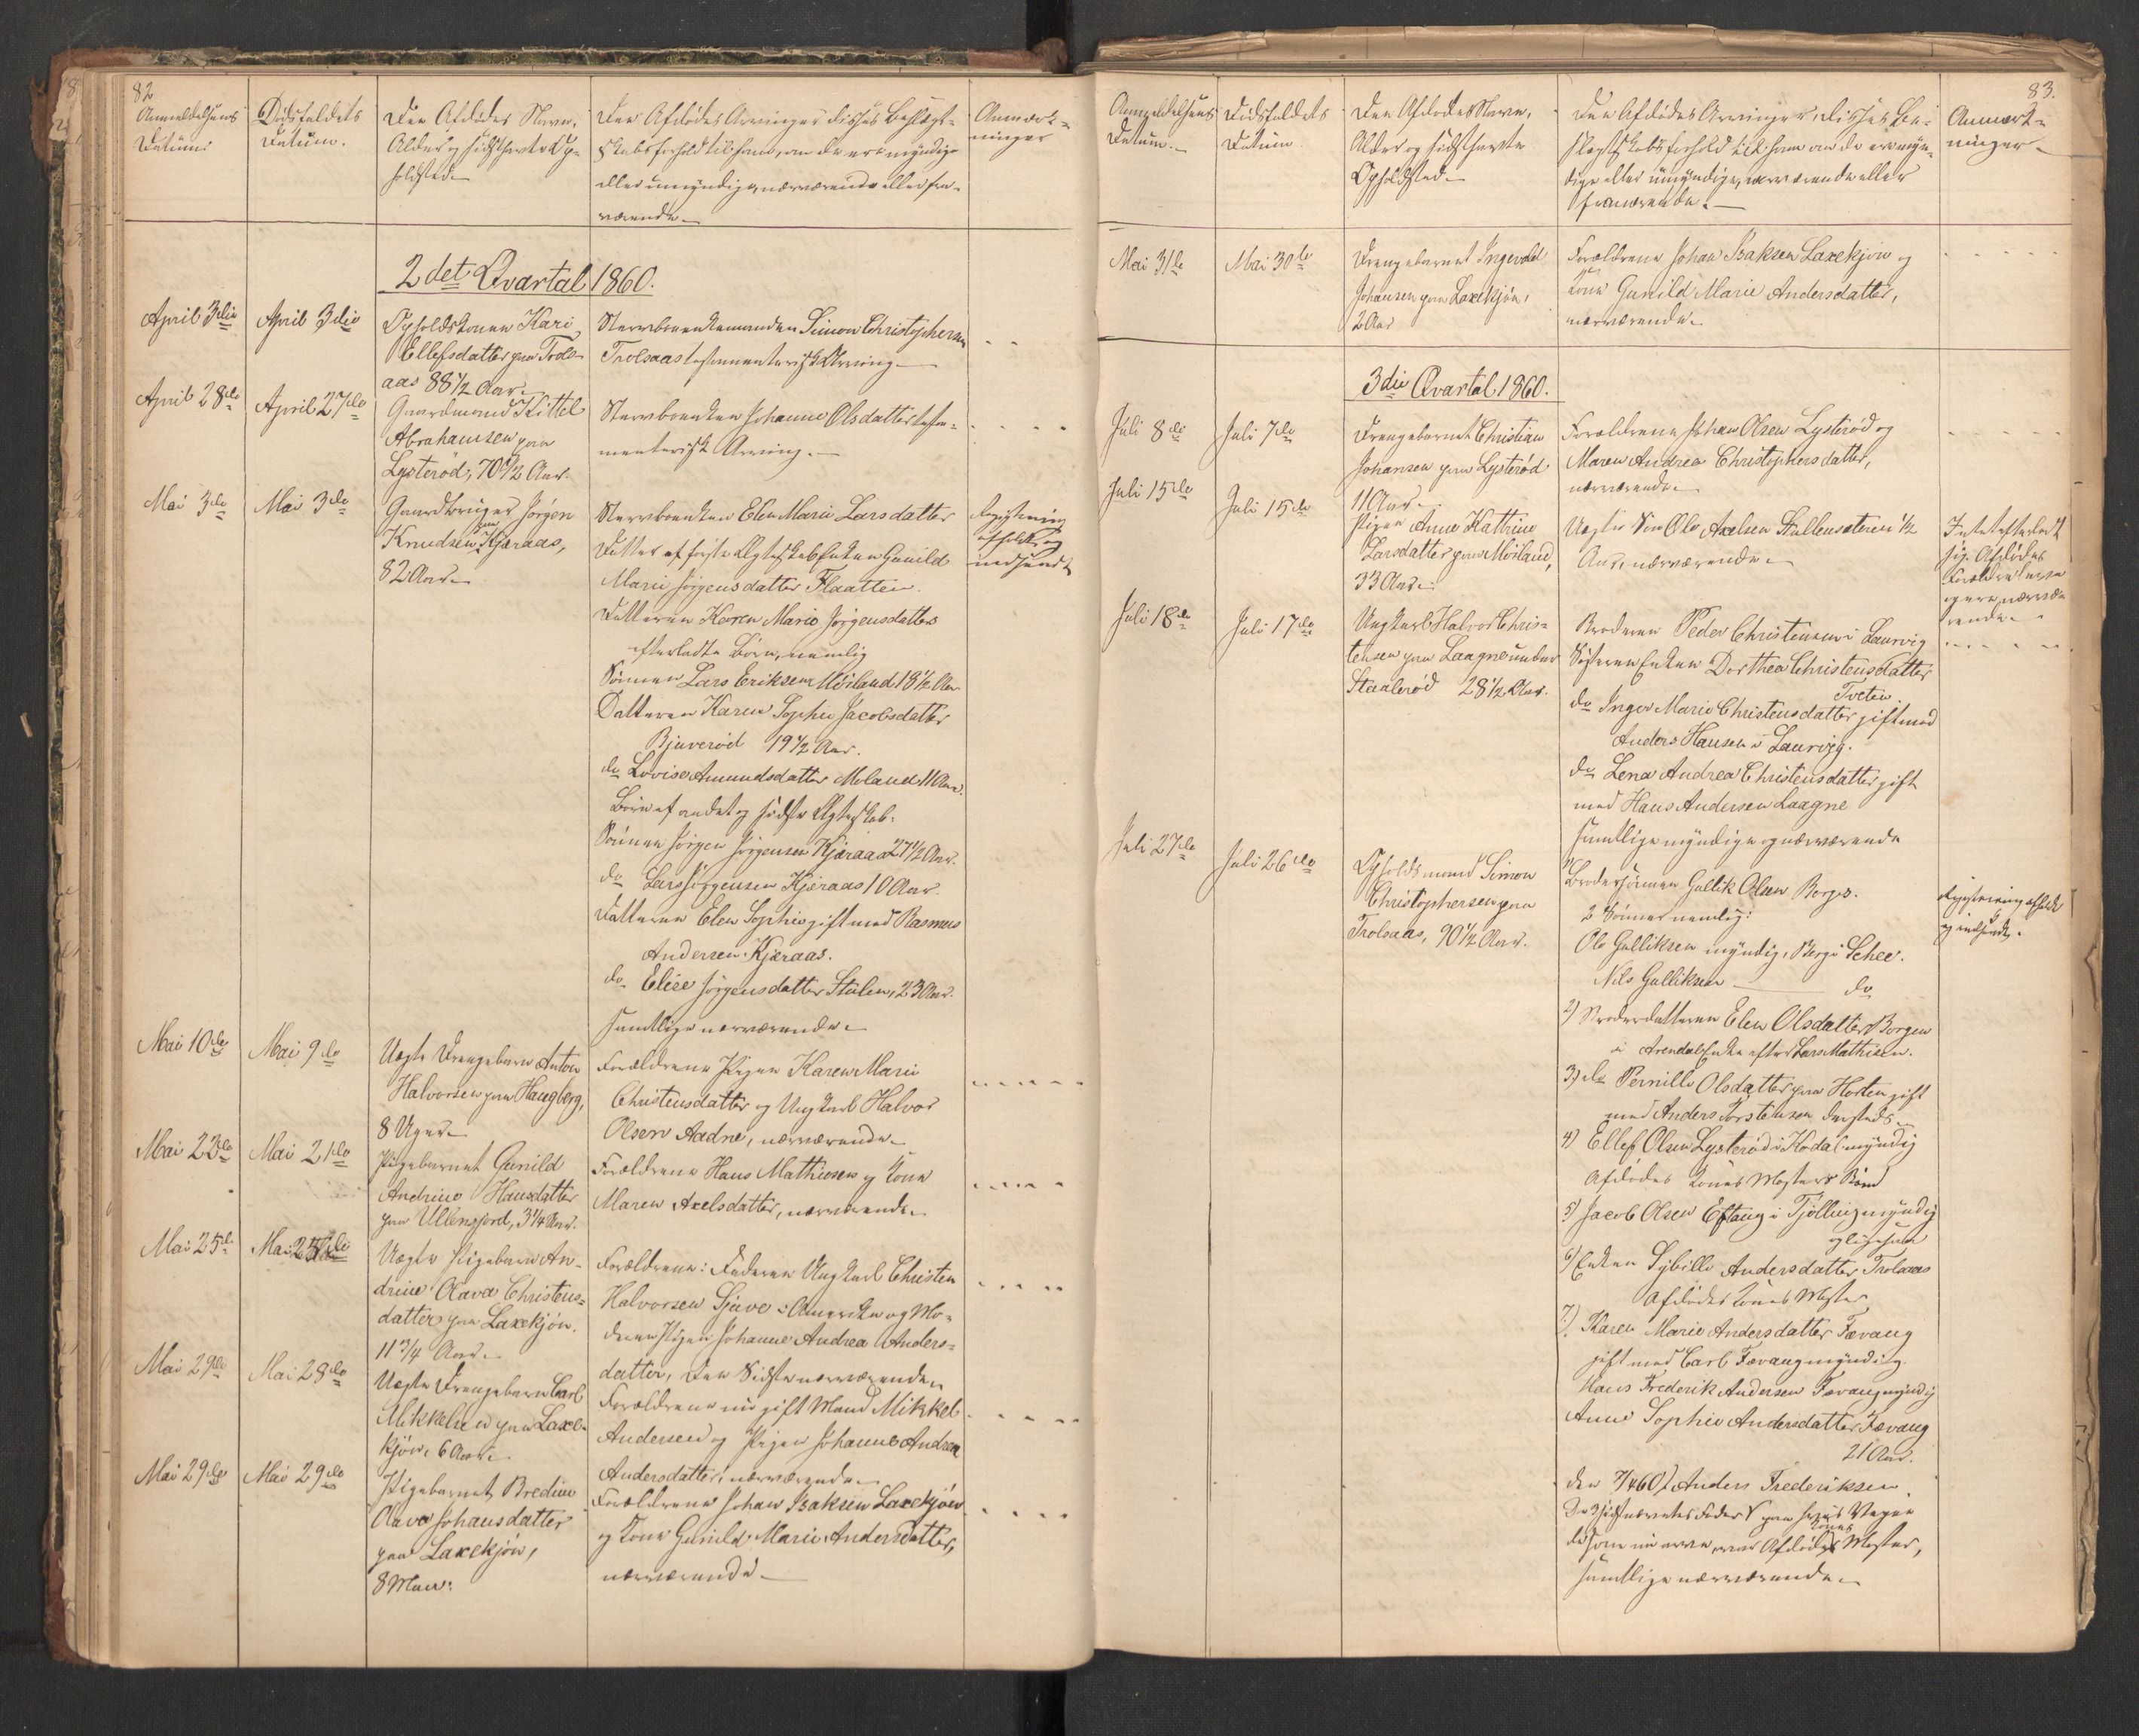 82
Anmeldelsens
Datum.
Dödsfaldets
Datum.
Den Afdödes Navn,
Alder og sidst havte Op-
holdsted.
Den Afdödes Arvinger disses Beslægt-
skabsforhold til ham, om de ere myndige
eller umyndige, nærværende eller fra-
værende.
Anmærk-
ninger
2det Qvartal 1860.
April 3die
April 3die
Opholdskonen Kari
Ellefsdatter paa Trols-
aas 88 1/2 Aar.
Stervboenkemanden Simon Christophersen
Trolsaas testamenterisk Arving.
April 28de
April 27de
Gaardmand Kittel
Abrahamsen paa
Lysteröd, 70 1/2 Aar.
Stervboenken Johanne Olsdatter testa-
menterisk Arving.
Mai 3de
Mai 3de
Gaardbruger Jörgen
Knudsen paa Kjæraas,
82 Aar.
Stervboenken Elen Marie Larsdatter
Datter af förste Ægteskab Enken Gunild
Marie Jörgensdatter Flaatten.
Datteren Karen Marie Jörgensdatters
efterladte Börn, nemlig
Sönnen Lars Eriksen Möiland 18 1/2 Aar
Datteren Karen Sophie Jacobsdatter
Bjuveröd 19 1/2 Aar.
do Lovise Amundsdatter Meland 11 Aar.
Börn af andet og sidste Ægteskab.
Sönnen Jörgen Jörgensen Kjæraas 27 1/2 Aar.
do Lars Jörgensen Kjæraas 10 Aar
Datteren Elen Sophie gift med Rasmus
Andersen Kjæraas.
do Elise Jörgensdatter Stulen, 23 Aar.
samtlige nærværende.
Registrering
afholdt og
indsendt
Mai 10de
Mai 9de
Uægte Drengebarn Anton
Halvorsen paa Haugberg,
8 Uger.
Forældrene Pigen Karen Marie
Christensdatter og Ungkarl Halvor
Olsen Aadne, nærværende.
Mai 23de
Mai 21de
Pigebarnet Gunild
Andrine Hansdatter
paa Ullensfjord, 3 1/4 Aar.
Forældrene Hans Mathiesen og Kone
Maren Axelsdatter, nærværende.
Mai 25de
Mai 25de
Uægte Pigebarn An-
drine Olava Christens-
datter paa Laxekjön.
11 3/4 Aar.
Forældrene: Faderen Ungkarl Christen
Halvorsen Sjuve i Amerika og Mo-
deren Pigen Johanne Andrea Anders-
datter, den Sidste nærværende.
Mai 29de
Mai 28de
Uægte Drengebarn Carl
Mikkelsen paa Laxe-
kjön, 6 Aar.
Forældrene nu gift Mand Mikkel
Andersen og Pigen Johanne Andrea
Andersdatter, nærværende.
Mai 29de
Mai 29de
Pigebarnet Bredine
Olava Johansdatter
paa Laxekjön,
8 Maan:
Forældrene Johan Isaksen Laxekjön
og Kone Gunild Marie Andersdatter,
nærværende.
83.
Anmeldelsens
Datum.
Dödsfaldets
Datum.
Den Afdödes Navn,
Alder og sidst havte
Opholdsted.
Den Afdödes Arvinger, disses Be-
slægtskabsforhold til ham om de ere myn-
dige eller umyndige, nærværende eller
fraværende.
Anmærk-
ninger
Mai 31te
Mai 30te
Drengebarnet Ingevald
Johansen paa Laxekjön,
2 Aar
Forældrene Johan Isaksen Laxekjön og
Kone Gunild Marie Andersdatter,
nærværende.
3die Qvartal 1860.
Juli 8de
Juli 7de
Drengebarnet Christian
Johansen paa Lysteröd
11 Aar.
Forældrene Johan Olsen Lysteröd og
Maren Andrea Christophersdatter,
nærværende.
Juli 15de
Juli 15de
Pigen Anne Kathrine
Larsdatter paa Möiland,
33 Aar.
Uægte Sön Ole Axelsen 1/2
Aar, nærværende.
Intet efterladt
sig. Afdödes
Forældre leve
og ere nærvæ-
rende.
Juli 18de
Juli 17de
Ungkarl Halvor Chris-
tensen paa Laagne under
Staaleröd 28 1/2 Aar.
Broderen Peder Christensen i Laurvig
Søsteren Enken Dorthea Christensdatter
Tveten.
do Inger Marie Christensdatter gift med
Anders Hansen i Laurvig.
do Lena Andrea Christensdatter gift
med Hans Andersen Laagne
samtlige myndige og nærværende
Juli 27de
Juli 26de
Opholdsmand Simon
Christophersen paa
Trolsaas, 90 1/2 Aar.
1) Brodersönnen Gullik Olsen Borges
2 Sönner nemlig:
Ole Gulliksen myndig, Berge Schee.
Nils Gulliksen do
2) Broderdatteren Elen Olsdatter Borgen
i Arendal Enke efter Lars Mathisen.
3) do Pernille Olsdatter paa Horten gift
med Anders Torstensen dersteds
4) Ellef Olsen Lysteröd i Kodal myndig
Afdödes Kones Mosters Barn
5) Jacob Olsen Eftang i Tjölling myndig
ogligesaa
6) Enken Sybille Andersdatter Trolsaas
Afdödes Kones Moster
7) Karen Marie Andersdatter Fævang
gift med Carl Fævang myndig.
Hans Frederik Andersen Fævang myndig
Anne Sophie Andersdatter Fævang
21 Aar.
den Anders Frederiksen
De 3 sidstnævntes Fader
Kones
Afdödes Moster,
samtlige nærværende.
Registrering afholdt
og indsendt.